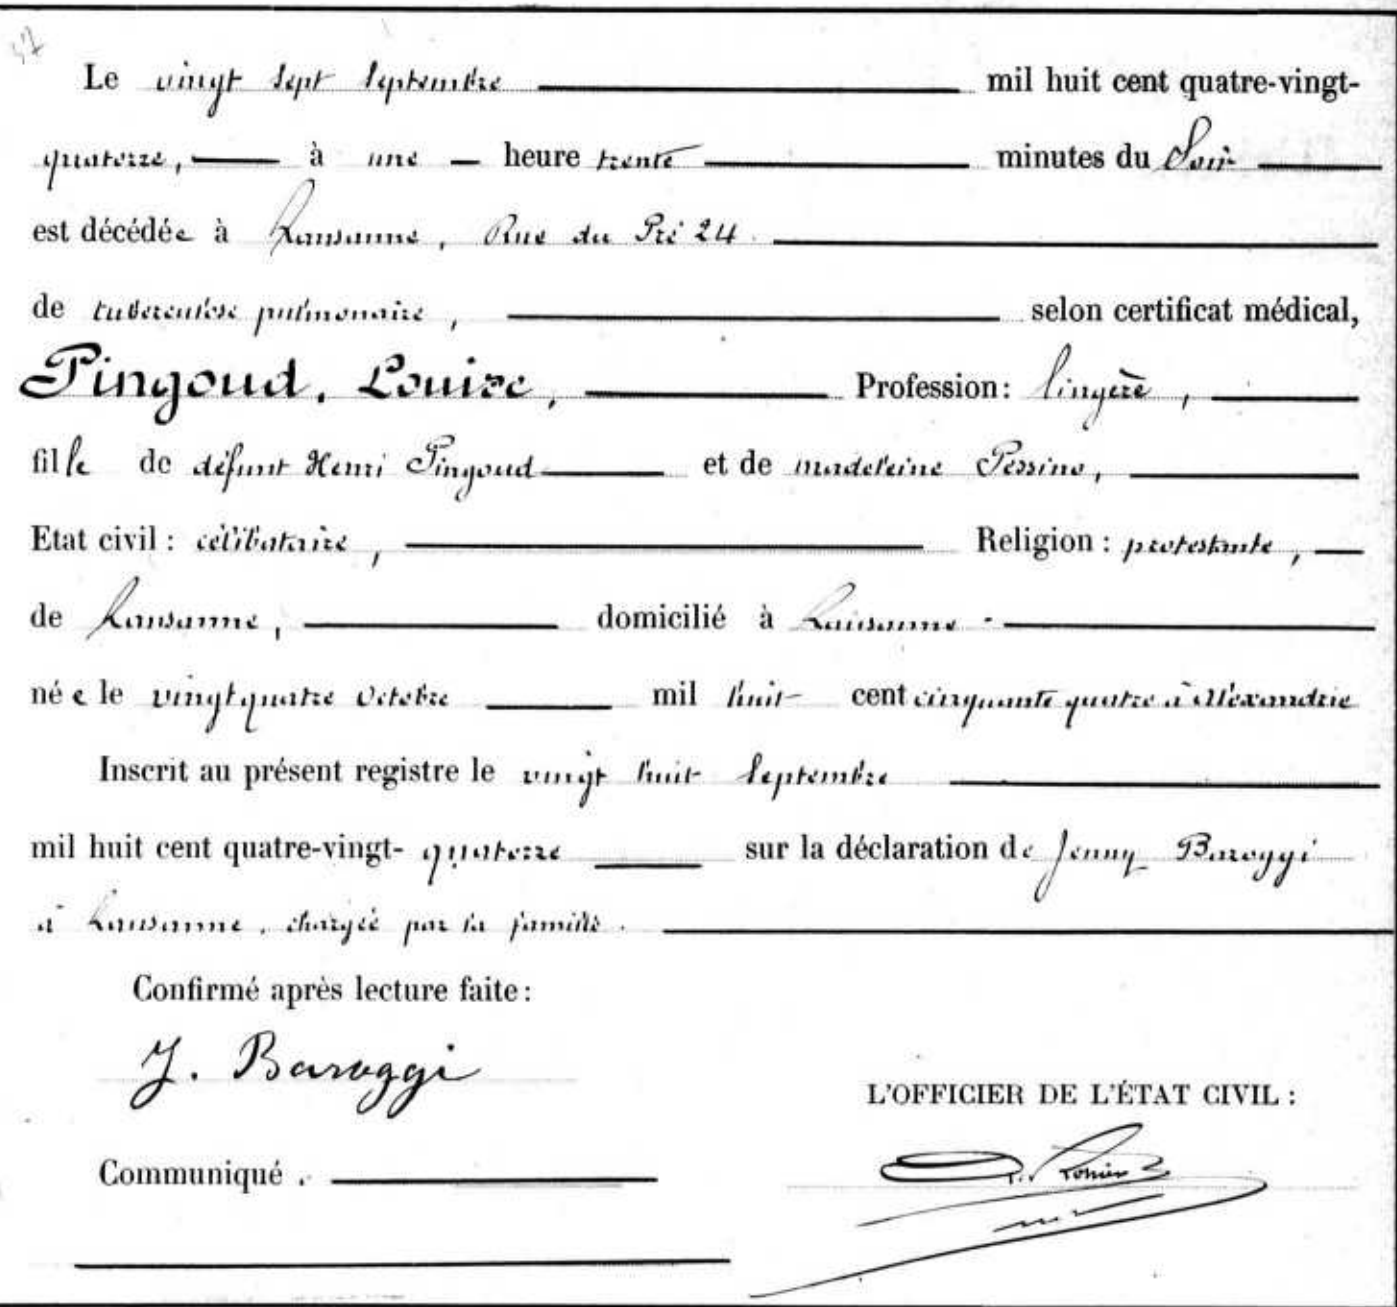 Le vingt sept Septembre mil huit cent quatre-vingt-
quatorze, à une heure trente minutes du Soir
est décédée à Lausanne, Rue du Pré 24.
de tuberculose pulmonaire, selon certificat médical,
Pingoud, Louise, Profession: lingère,
fille de défunt Henri Pingoud et de madeleine Pessina,
Etat civil : célibataire, Religion : protestante,
de Lausanne, domicilié à Lausanne.
née le vingt quatre Octobre mil huit cent cinquante quatre à Alexandrie
Inscrit au présent registre le vingt huit Septembre
mil huit cent quatre-vingt-quatorze sur la déclaration de Jenny Baroggi
à Lausanne, chargée par la famille.
Confirmé après lecture faite:
J. Baroggi
L'OFFICIER DE L'ÉTAT CIVIL :
Communiqué